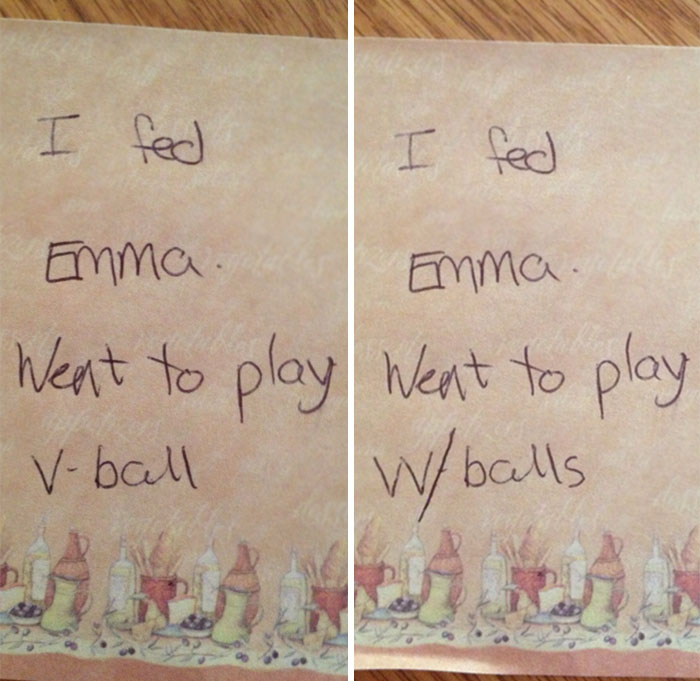 I fed
Emma.
Went to play
V-ball
I fed
Emma.
Went to play
W/balls